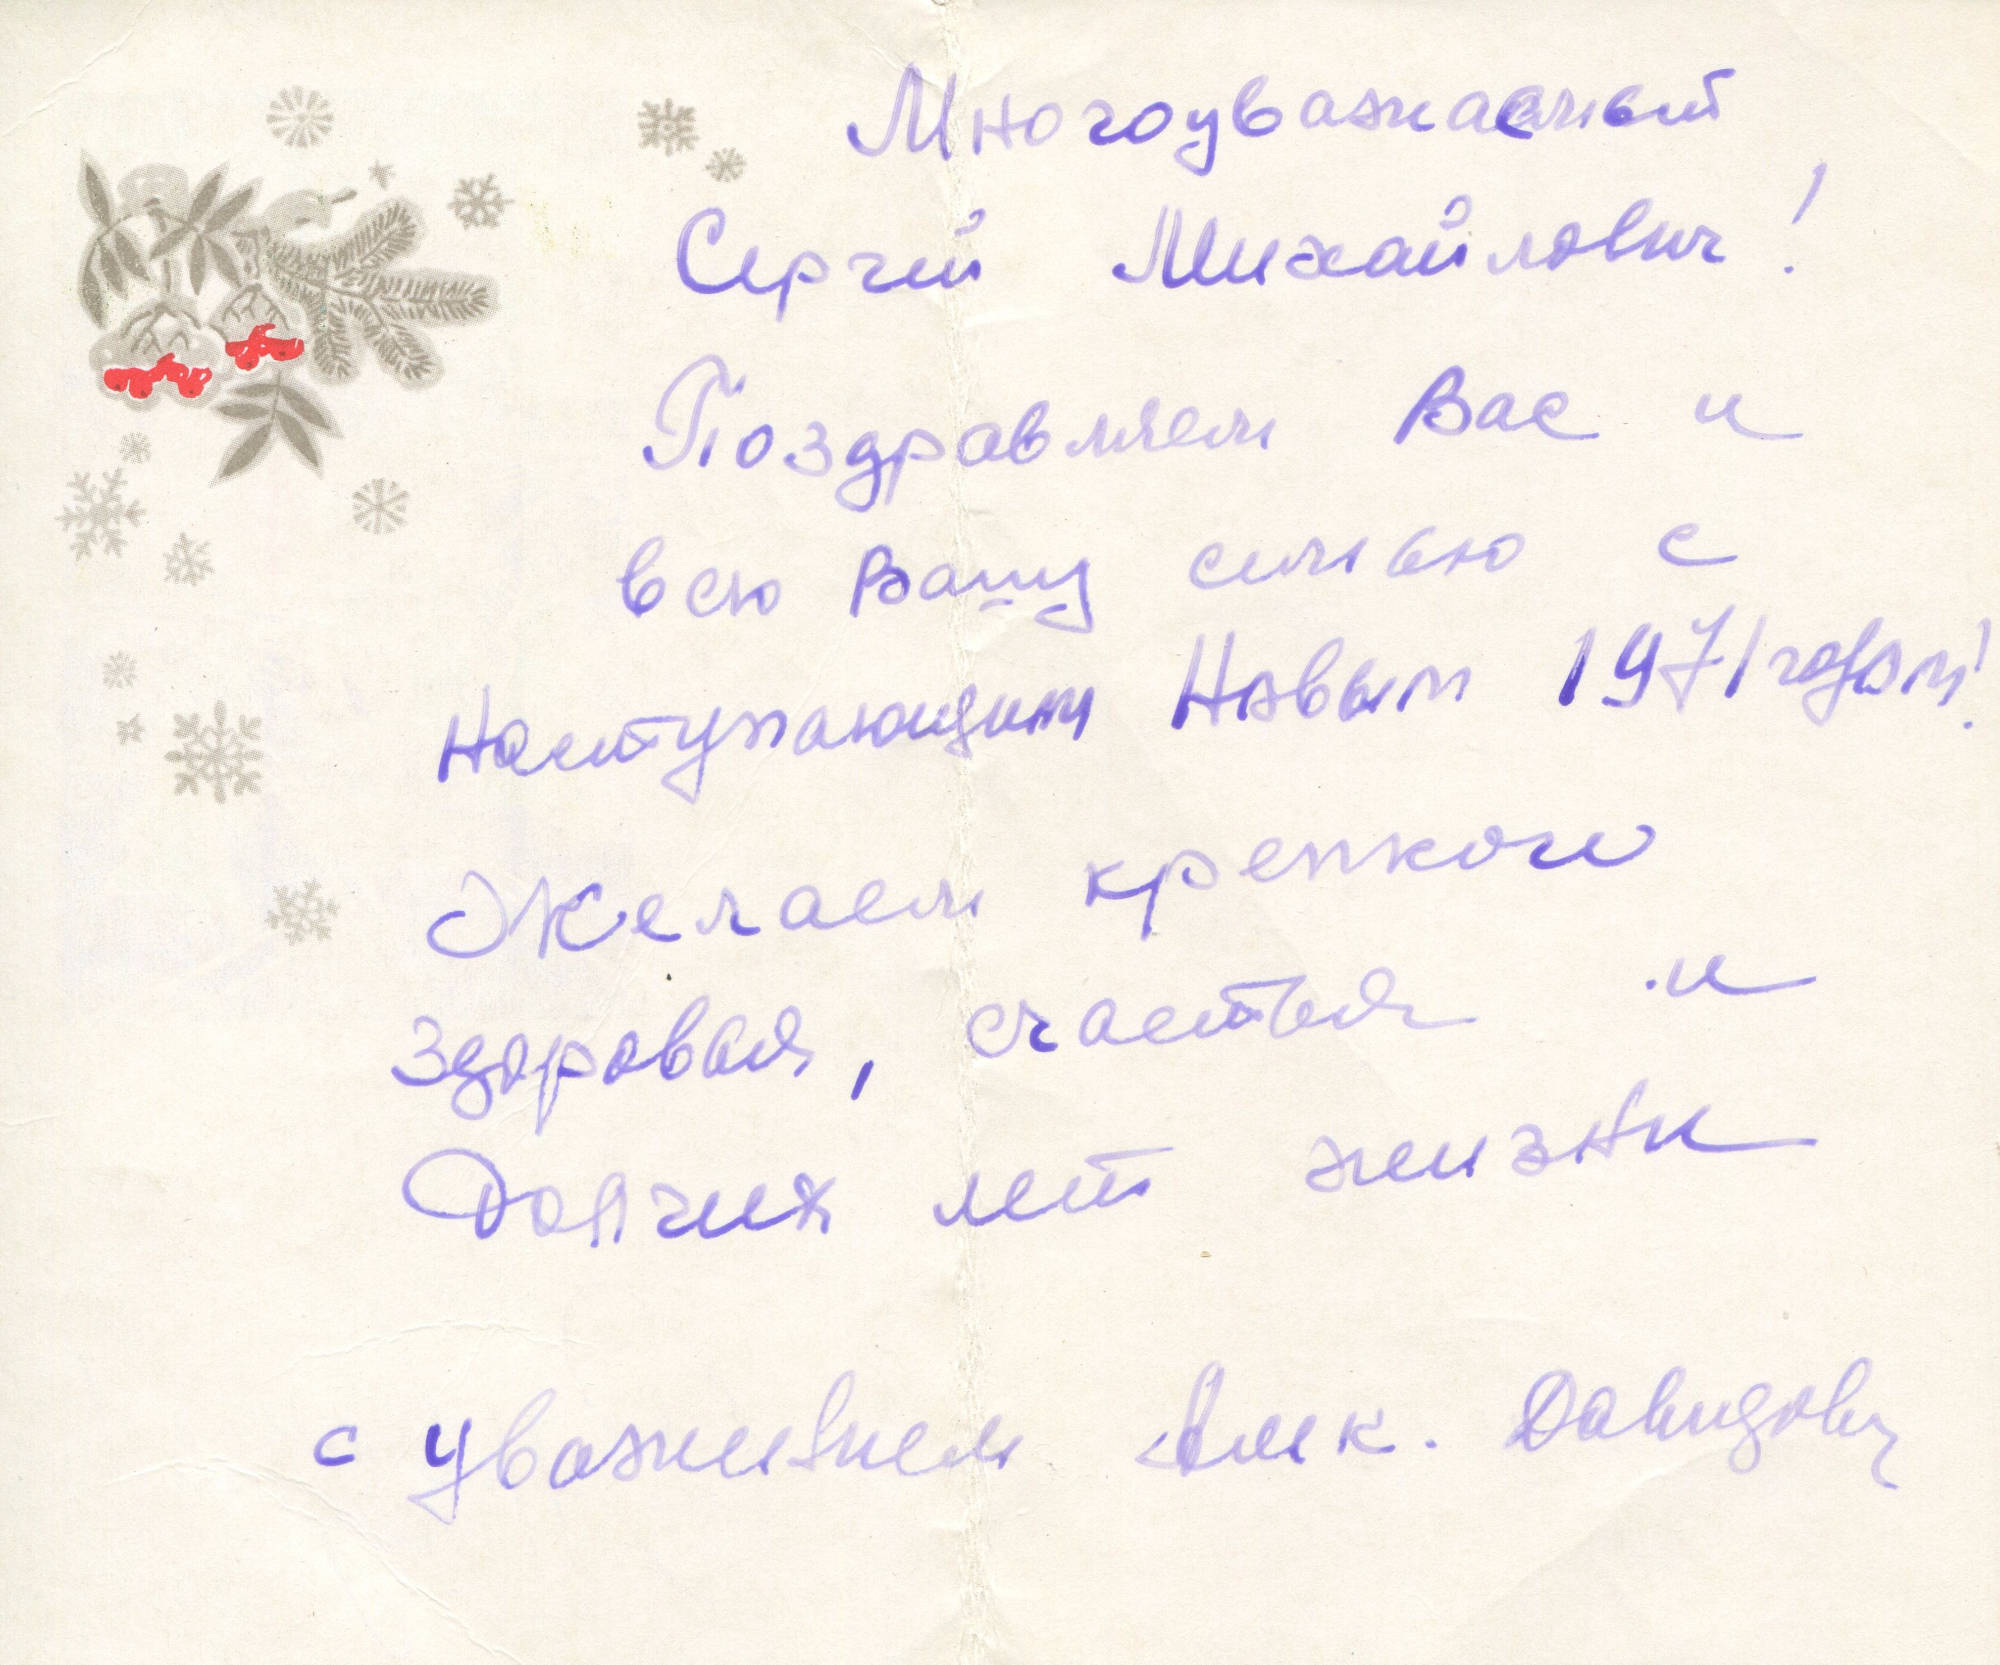 Многоуважаемый
Сергей Михайлович!
Поздравляем Вас и
всю Вашу семью с
Наступающим Новым 1971 годом!
Желаем крепкого
здоровья, счастья и
Долгих лет жизни
с уважением Алек. Давидович